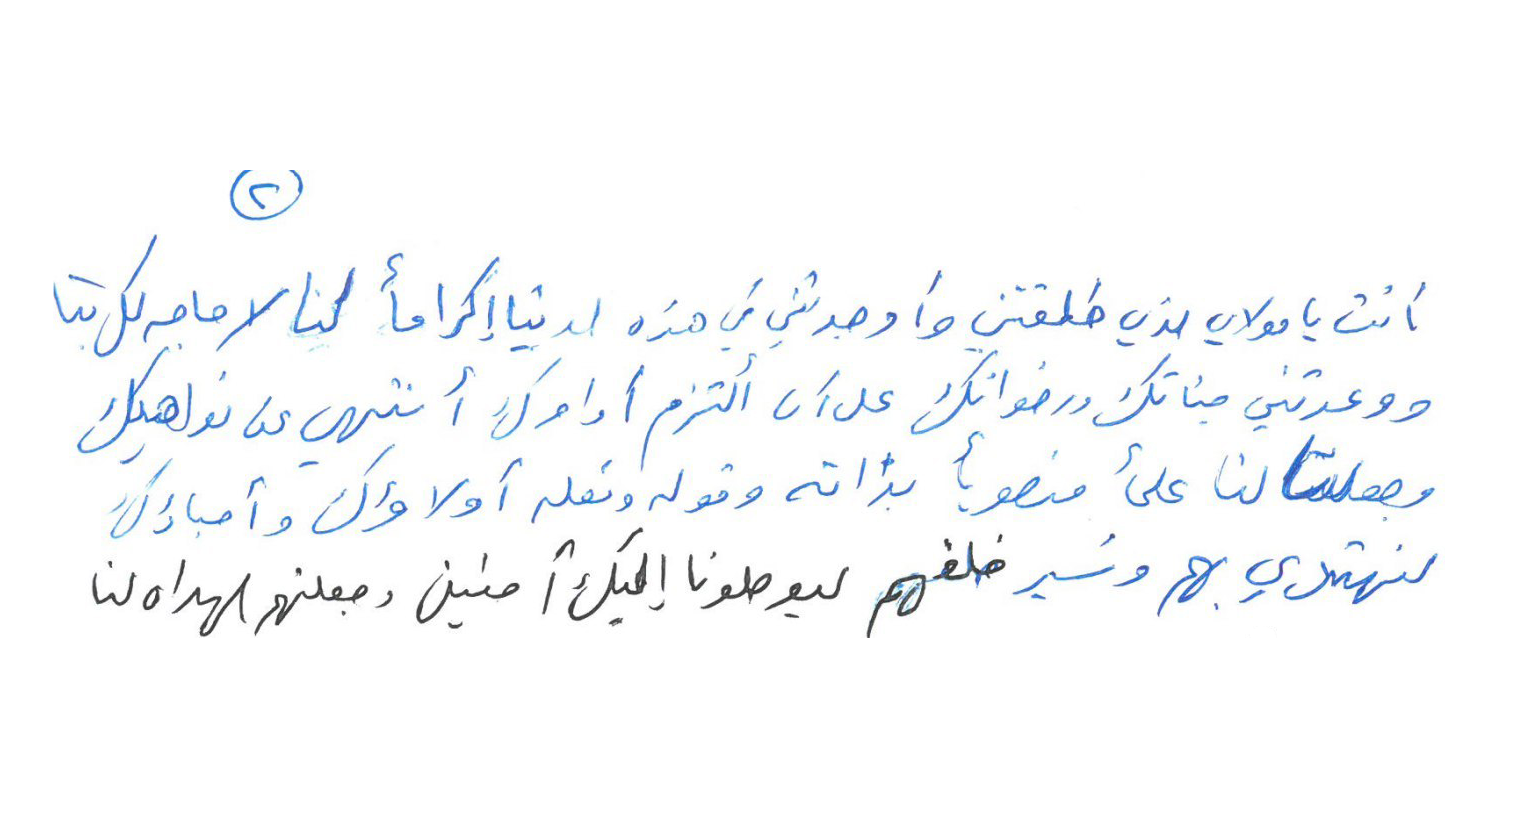 ٢
أنت يا مولاي الذي خلقتني وأوجدتني في هذه الدنيا إكراماً لنا لا حاجه لك بنا
ووعدتني جناتك ورضوانك على أن ألتزم أوامرك أنتهي عن نواهيك
وجعلت لنا علىً منصوباً بذاته وقوله وفعله أولاؤك وأحباؤك
لنهتدي بهم ونسير خلفهم ليوصلونا إليك آمنين وجعلتهم الهداه لنا